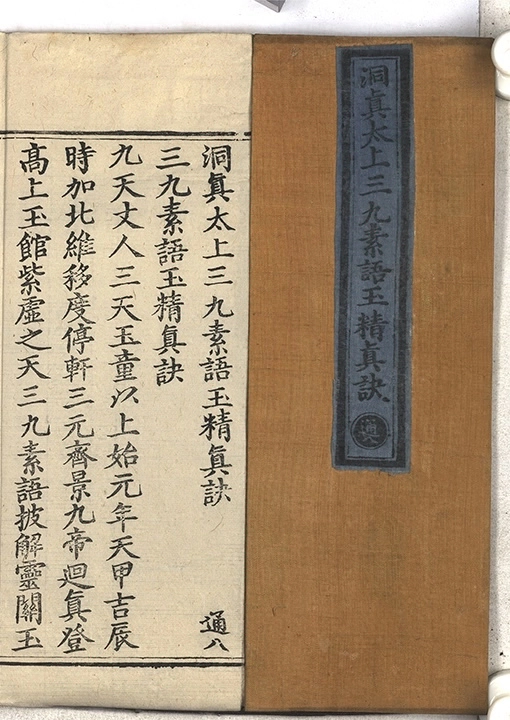 洞眞太上三九素語玉精眞訣
通八
洞眞太上三九素語玉精眞訣
通八
三九素語玉精眞訣
九天丈人三天玉童以上始元年天甲吉辰
時加北維移度停軒三元齊景九帝迴眞登
髙上玉館紫虛之天三九素語披解靈關玉